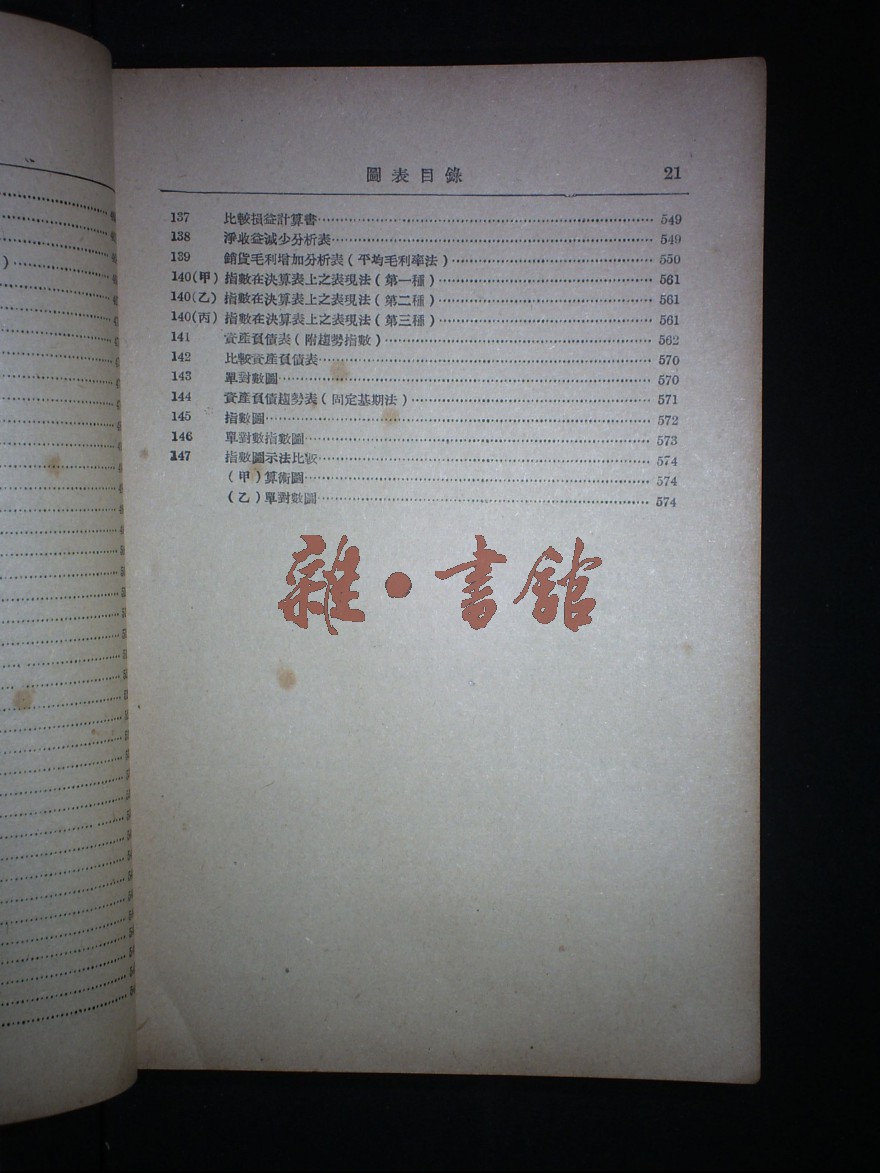 圖表目錄 21
137 比較損益計算書 549
138 淨收益減少分析表 549
139 銷貨毛利增加分析表(平均毛利率法) 550
140(甲) 指數在決算表上之表現法(第一種) 561
140(乙) 指數在決算表上之表現法(第二種) 561
140(丙) 指數在決算表上之表現法(第三種) 561
141 資產負債表(附趨勢指數) 562
142 比較資產負債表 570
143 單對數圖 570
144 資產負債趨勢表(固定基期法) 571
145 指數圖 572
146 單對數指數圖 573
147 指數圖示法比較 574
(甲)算術圖 574
(乙)單對數圖 574
雜·書館